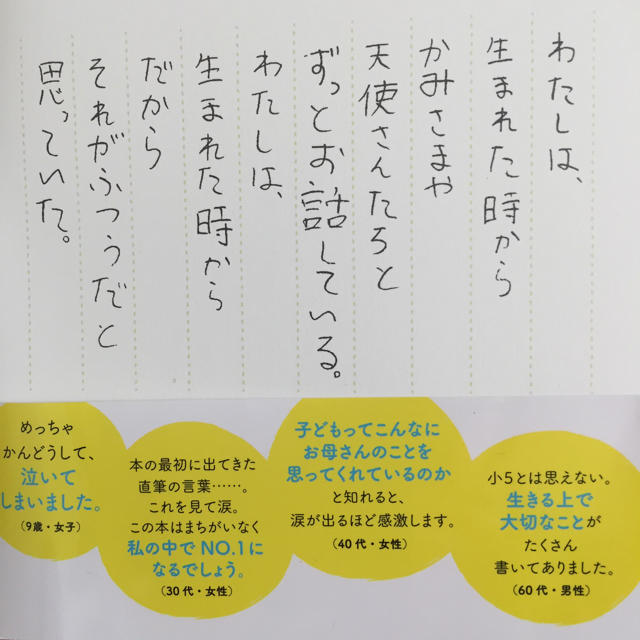 わたしは、
生まれた時から
かみさまや
天使さんたちと
ずっとお話している。
わたしは、
生まれた時から
だから
それがふつうだと
思っていた。
めっちゃ
かんどうして、
泣いて
しまいました。
(9歳・女子)
本の最初に出てきた
直筆の言葉……。
これを見て涙。
この本はまちがいなく
私の中でNO.1に
なるでしょう。
(30代・女性)
子どもってこんなに
お母さんのことを
思ってくれているのか
と知れると、
涙が出るほど感激します。
(40代・女性)
小5とは思えない。
生きる上で
大切なことが
たくさん
書いてありました。
(60代・男性)